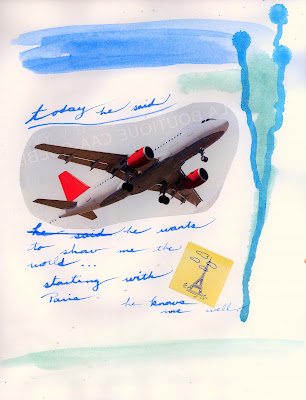 today he said
he said he wants
to show me the
world...
starting with
Paris. he knows
me well.